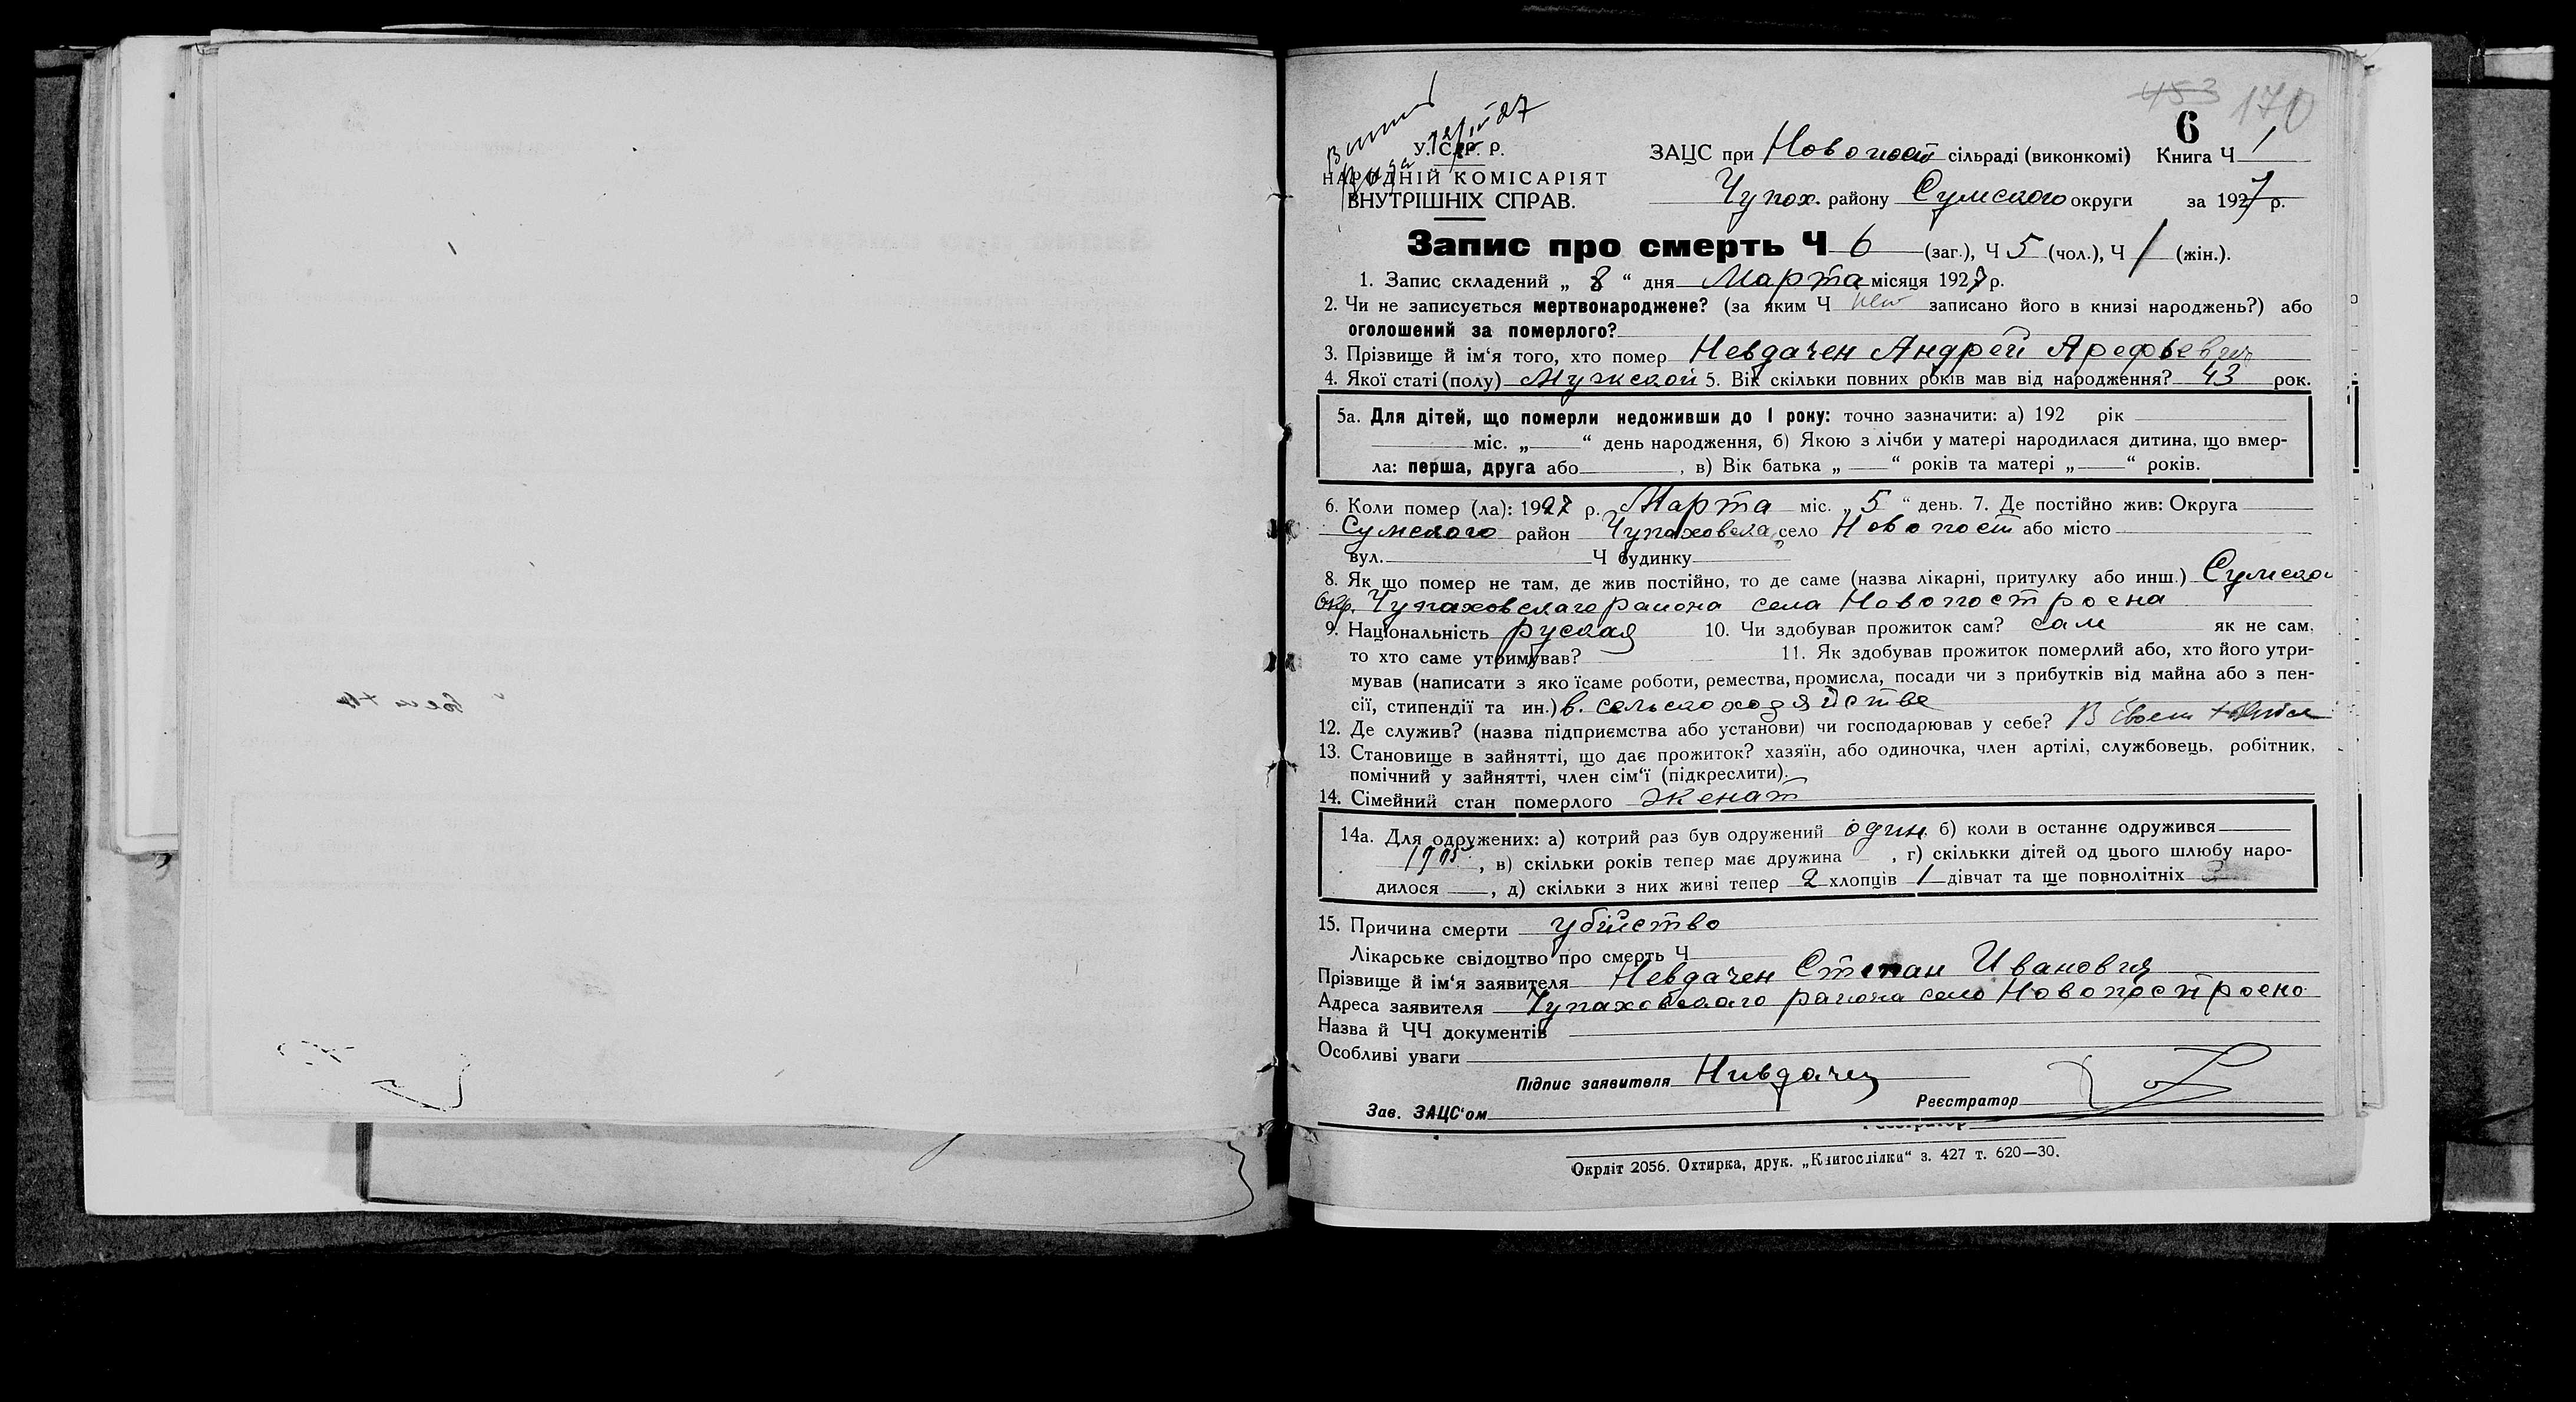 453 170
6
У. С. Р. Р. ЗАЦС при Новопост сільраді (виконкомі) Книга Ч 1
НАРОДНІЙ КОМІСАРІЯТ
ВНУТРІШНІХ СПРАВ. Чупох. району Сумского округи за 1927 р.
Запис про смерть Ч 6 (заг.), Ч 5 (чол.), Ч 1 (жін.).
1. Запис складений „ 8 “ дня Марта місяця 1927 р.
2. Чи не записується мертвонароджене? (за яким Ч записано його в книзі народжень?) або
оголошений за померлого?
3. Прізвище й ім‘я того, хто помер Невдачен Андрей Арефьевич
4. Якої статі (полу) Мужской 5. Вік скільки повних років мав від народження? 43 рок.
5а. Для дітей, що померли недоживши до 1 року: точно зазначити: а) 192 рік
міс. „ “ день народження, б) Якою з лічби у матері народилася дитина, що вмер-
ла: перша, друга або , в) Вік батька „ “ років та матері „ “ років.
6. Коли помер (ла): 1927 р. Марта міс. „ 5 “ день. 7. Де постійно жив: Округа
Сумского район Чупаховска село Новопост або місто
вул. Ч будинку
8. Як що помер не там, де жив постійно, то де саме (назва лікарні, притулку або инш.) Сумско
окр. Чупаховскаго района села Новопостроена
9. Національність руская 10. Чи здобував прожиток сам? сам як не сам,
то хто саме утримував? 11. Як здобував прожиток померлий або, хто його утри-
мував (написати з яко їсаме роботи, ремества, промисла, посади чи з прибутків від майна або з пен-
сії, стипендії та ин.) в. сельскохозяйстве
12. Де служив? (назва підприємства або установи) чи господарював у себе? В своем
13. Становище в зайнятті, що дає прожиток? хазяїн, або одиночка, член артілі, службовець, робітник,
помічний у зайнятті, член сім‘ї (підкреслити).
14. Сімейний стан померлого женат
14а. Для одружених: а) котрий раз був одружений один б) коли в останнє одружився
1905 , в) скільки років тепер має дружина , г) скількки дітей од цього шлюбу наро-
дилося , д) скільки з них живі тепер 2 хлопців 1 дівчат та ще повнолітніх 3
15. Причина смерти убійство
Лікарське свідоцтво про смерть Ч
Прізвище й ім‘я заявителя Невдачен Степан Иванович
Адреса заявителя Чупаховскаго района село Новопостроено
Назва й ЧЧ документів
Особливі уваги
Підпис заявителя Нивдачен
Зав. ЗАЦС‘ом Реєстратор
Реєстратор
Окрліт 2056. Охтирка, друк. „Книгоспілка“ з. 427 т. 620—30.